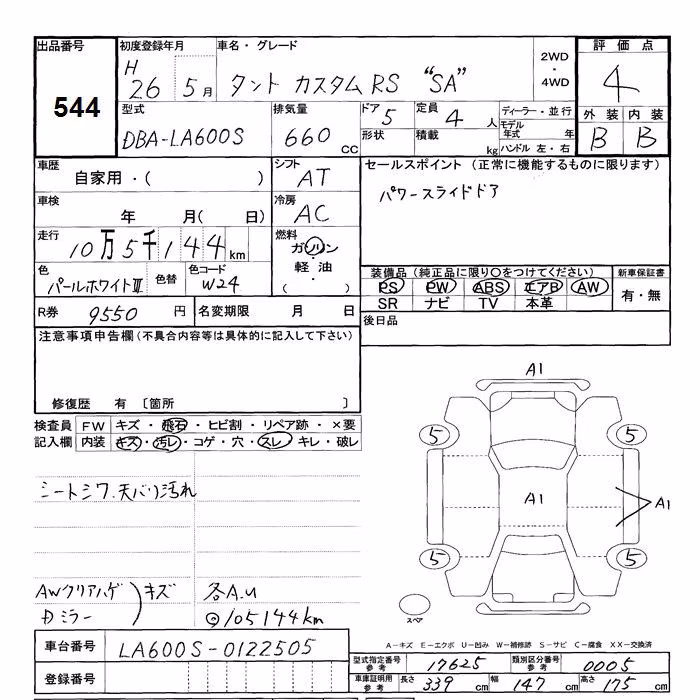 出品番号 初度登録年月 車名・グレード 2WD 評価点
544
H 26 5月 タント カスタムRS "SA" ・ 4WD 4
型式 排気量 ドア 5 定員 4人 ディーラー・並行 外装 内装
DBA-LA600S 660 CC 形状 積載 kg モデル年式 年 B B
ハンドル 左・右
車歴 シフト セールスポイント (正常に機能するものに限ります)
自家用・( ) AT パワースライドドア
車検 冷房
年 月( 日) AC
走行 燃料
10万5千144km ガソリン・
軽油・
( )
色 色替 色コード 装備品(純正品に限り○をつけてください) 新車保証書
パールホワイトIII W24 PS PW ABS エアB AW 有・無
SR ナビ TV 本革
R券 9550円 名変期限 月 日 後日品
注意事項申告欄(不具合内容等は具体的に記入して下さい)
修復歴 有 〔箇所 〕
検査員 FW キズ・飛石・ヒビ割・リペア跡・×要
記入欄 内装 キズ・汚レ・コゲ・穴・スレ・キレ・破レ
シートシワ.天バリ汚れ
AWクリアハゲ キズ 各A.U
Dミラー ◎105144km
A1
5 5
A1 A1
5 5
スペア
A-キズ E-エクボ U-凹み W-補修跡 S-サビ C-腐食 XX-交換済
車台番号 LA600S-0122505
登録番号
型式指定番号 参考 17625 類別区分番号 参考 0005
車庫証明用 参考 長さ 339cm 幅 147cm 高さ 175cm